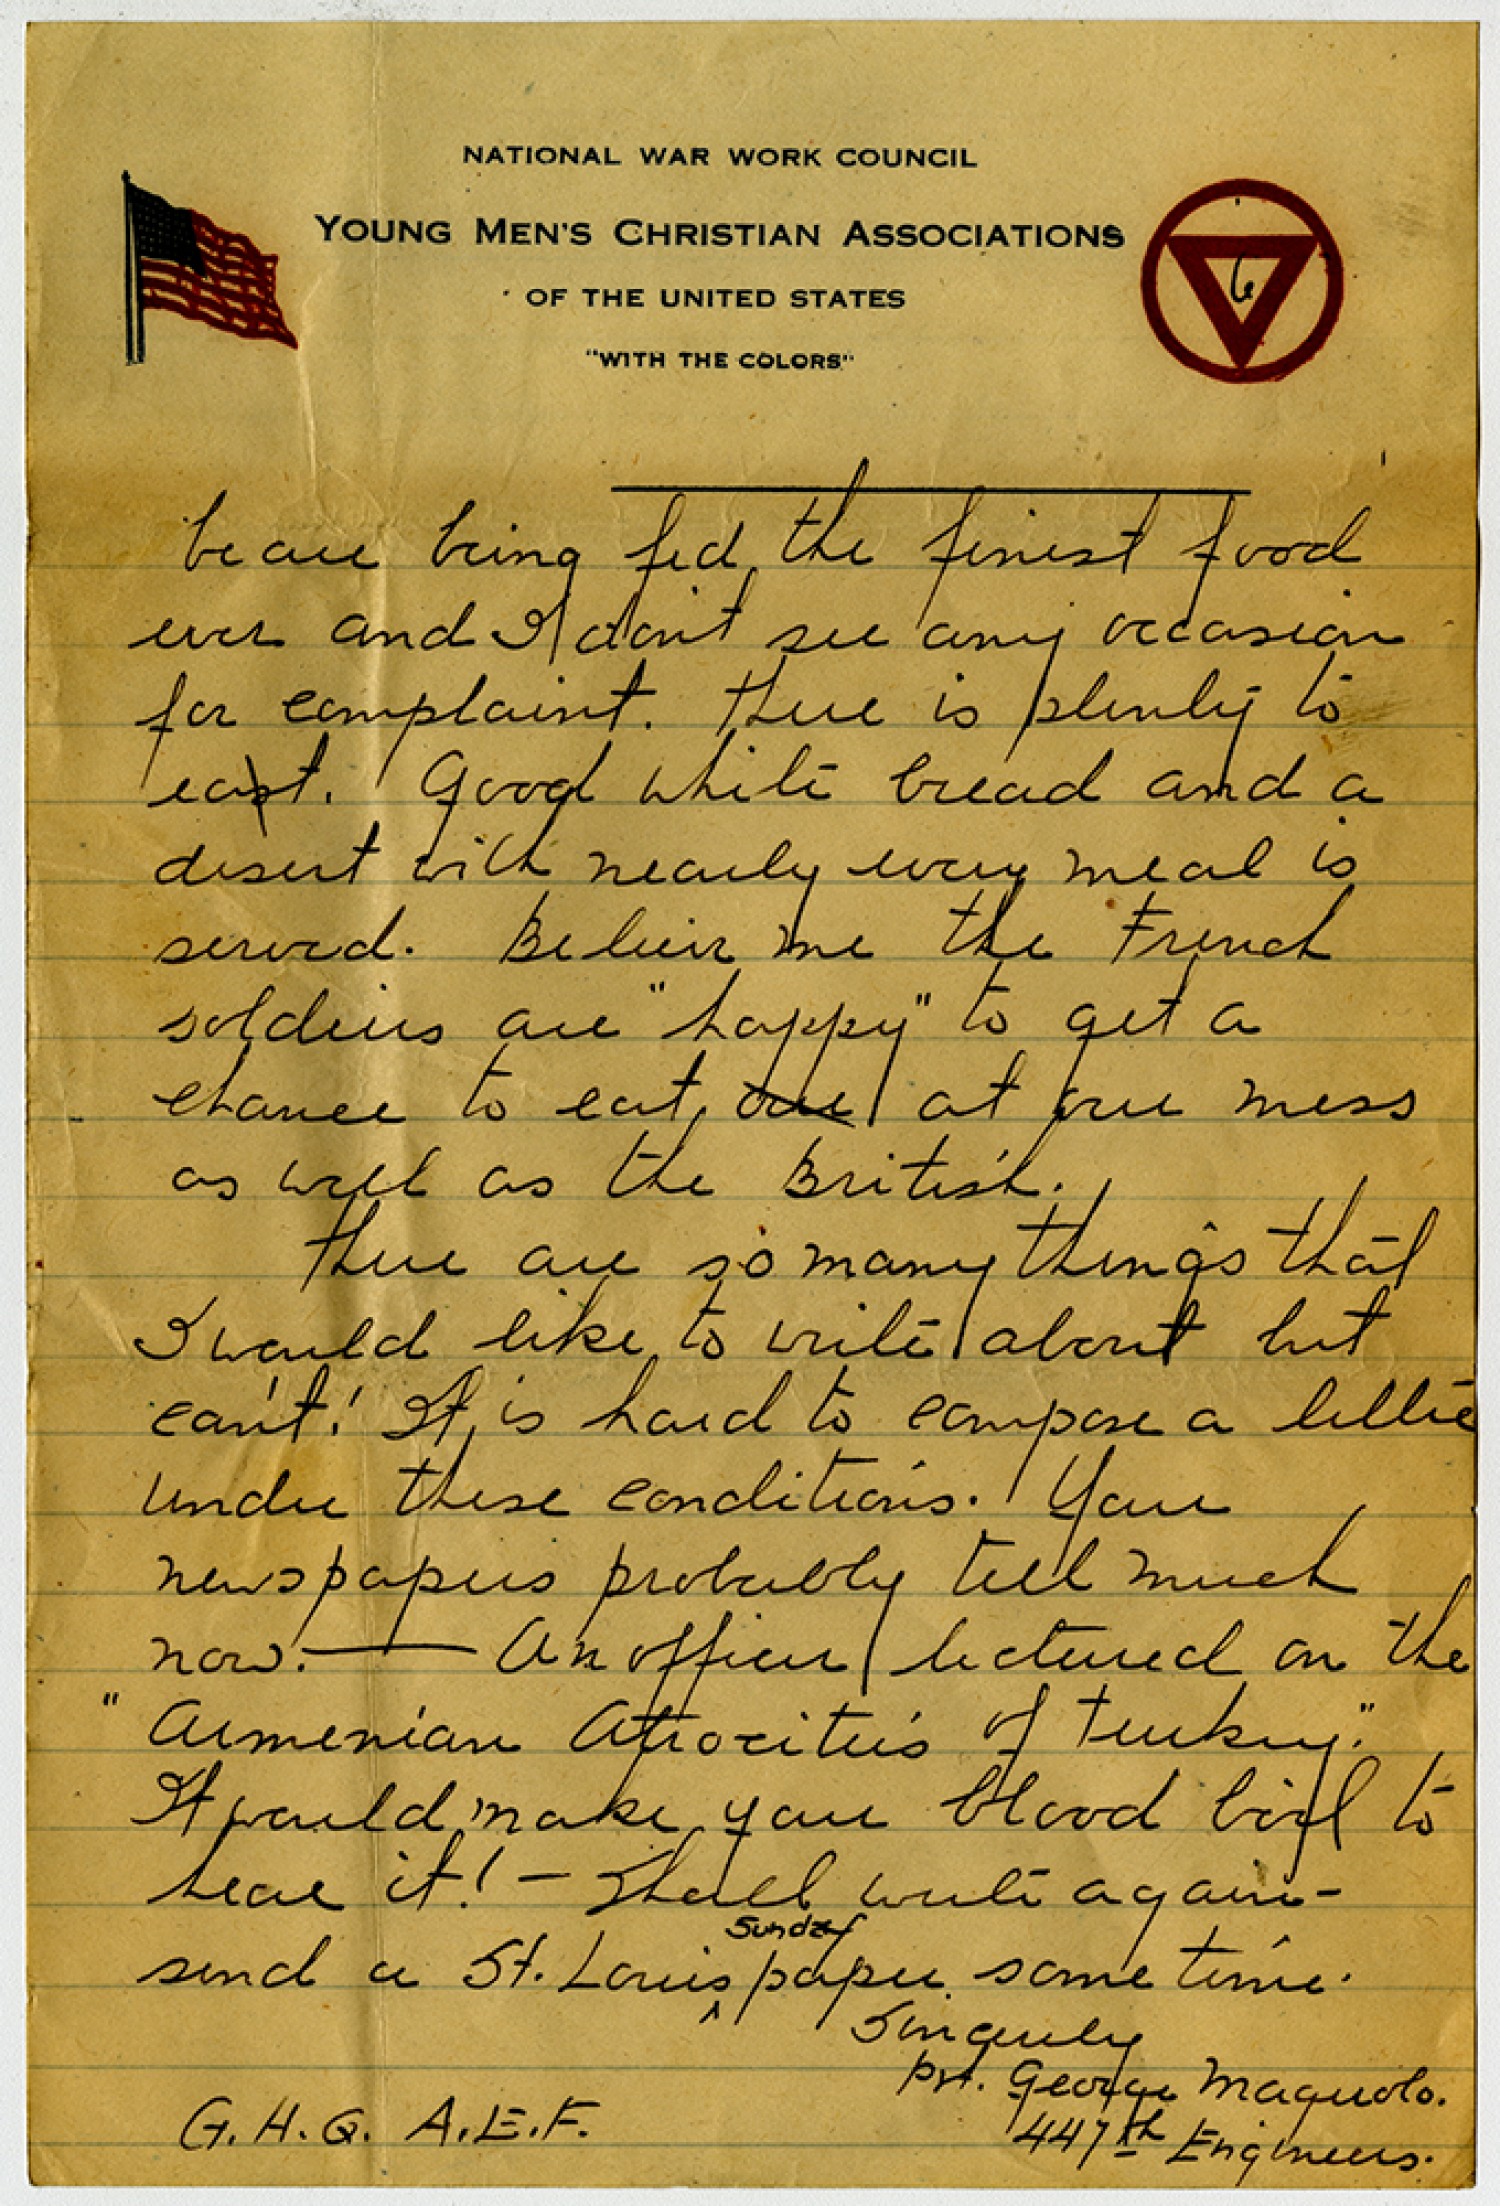 NATIONAL WAR WORK COUNCIL
YOUNG MEN'S CHRISTIAN ASSOCIATIONS
OF THE UNITED STATES
"WITH THE COLORS"
6
We are being fed the finest food
ever and I don't see any occasion
for complaint. There is plenty to
eat. Good white bread and a
desert with nearly every meal is
served. Believe me the French
soldiers are "happy" to get a
chance to eat our at our mess
as well as the British.
There are so many things that
I would like to write about but
can't! It is hard to compose a letter
under these conditions. Your
newspapers probably tell much
now. — An officer lectured on the
"Armenian Atrocities of Turkey."
It would make your blood boil to
hear it! - Shall write again -
send a St. Louis ^ Sunday paper some time.
Sincerely
Pvt. George Maguolo.
447th Engineers.
G.H.Q. A.E.F.